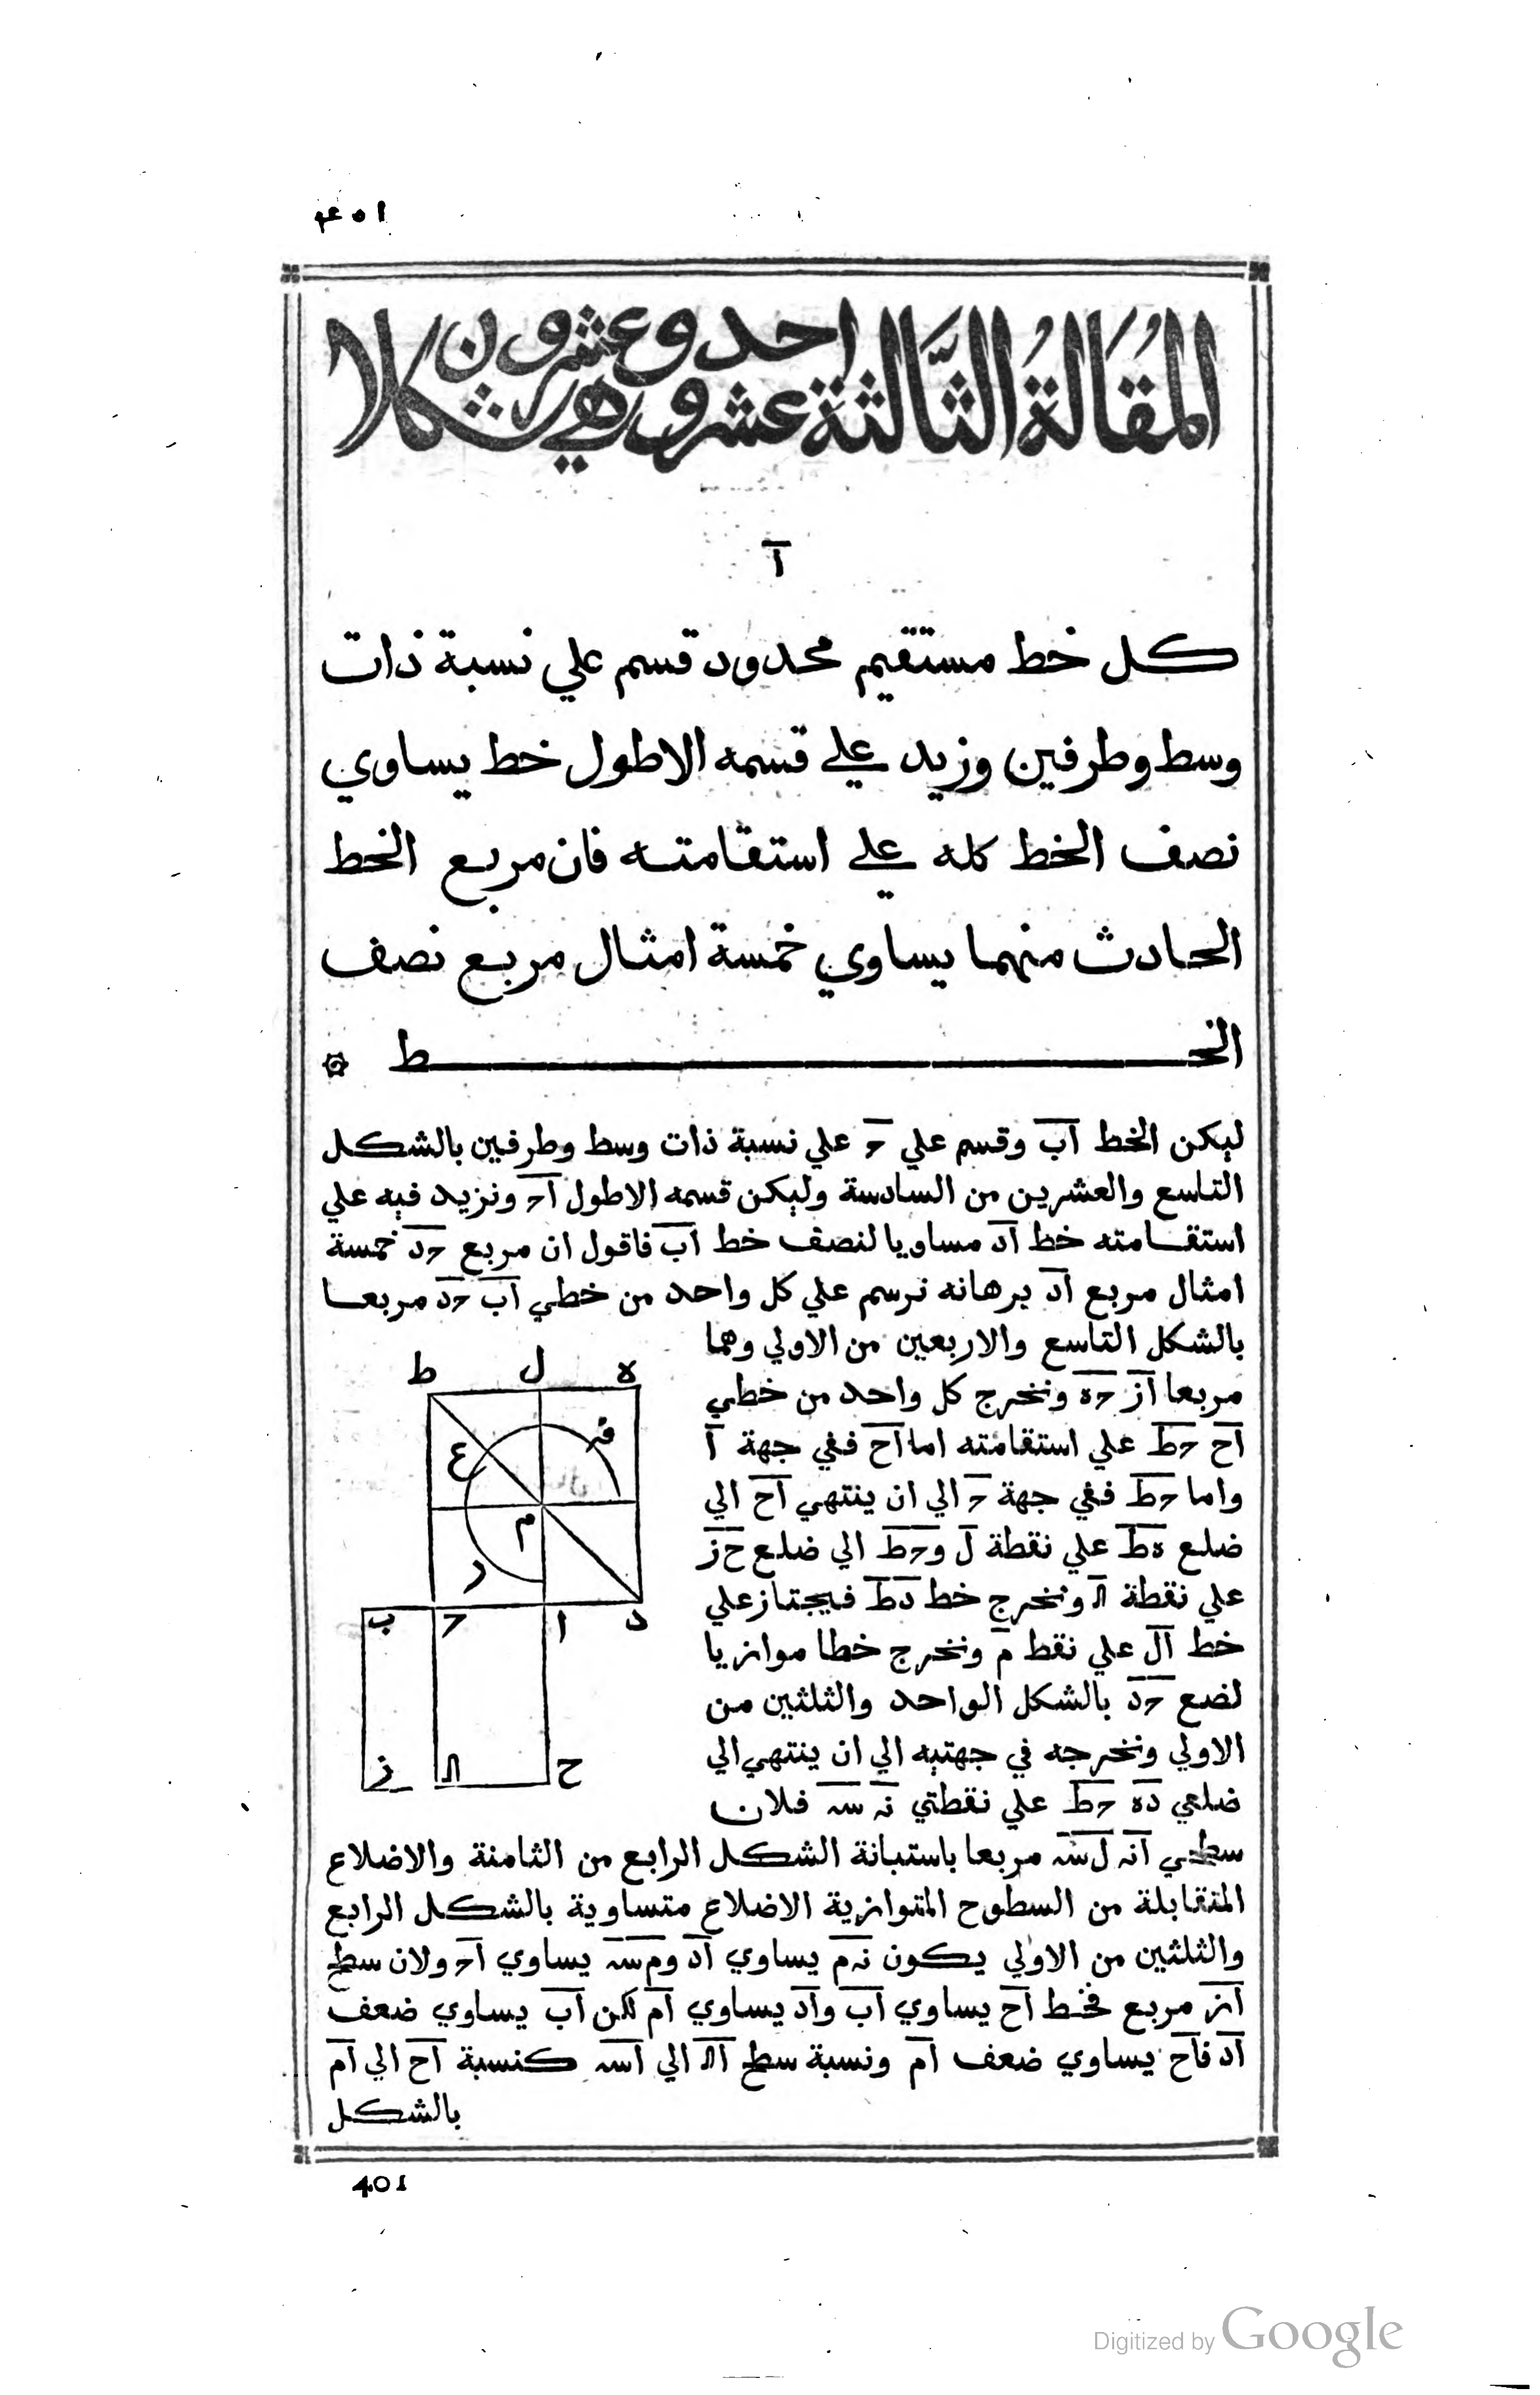 المقالة الثالثة عشر وهي احد وعشرون شكلا
ا
كل خط مستقيم محدود قسم علي نسبة ذات
وسط وطرفين وزيد علي قسمه الاطول خط يساوي
نصف الخط كله علي استقامته فان مربع الخط
الحادث منهما يساوي خمسة امثال مربع نصف
الخط
ليكن الخط اب وقسم علي ح علي نسبة ذات وسط وطرفين بالشكل
التاسع والعشرين من السادسة وليكن قسمه الاطول اح ونزيد فيه علي
استقامته خط اد مساويا لنصف خط اب فاقول ان مربع حد خمسة
امثال مربع اد برهانه نرسم علي كل واحد من خطي اب حد مربعا
بالشكل التاسع والاربعين من الاولي وهما
مربعا از حه ونخرج كل واحد من خطي
اح حط علي استقامته اما اح ففي جهة ا
واما حط ففي جهة ح الي ان ينتهي اح الي
ضلع هط علي نقطة ل وحط الي ضلع حز
علي نقطة لا ونخرج خط دط فيجتاز علي
خط ال علي نقط م ونخرج خطا موازيا
لضع حد بالشكل الواحد والثلثين من
الاولي ونخرجه في جهتيه الي ان ينتهي الي
ضلعي ده حط علي نقطتي نه سه فلان
ط ل ه
ف
ع
م
ر
ب ح ا د
ز لا ح
سطحي انه ل سه مربعا باستبانة الشكل الرابع من الثامنة والاضلاع
المتقابلة من السطوح المتوازية الاضلاع متساوية بالشكل الرابع
والثلثين من الاولي يكون نه م يساوي اد وم سه يساوي اح ولان سطح
از مربع فخط اح يساوي اب واد يساوي ام لكن اب يساوي ضعف
اد فاح يساوي ضعف ام ونسبة سطح الا الي اسه كنسبة اح الي ام
بالشكل
401
Digitized by Google